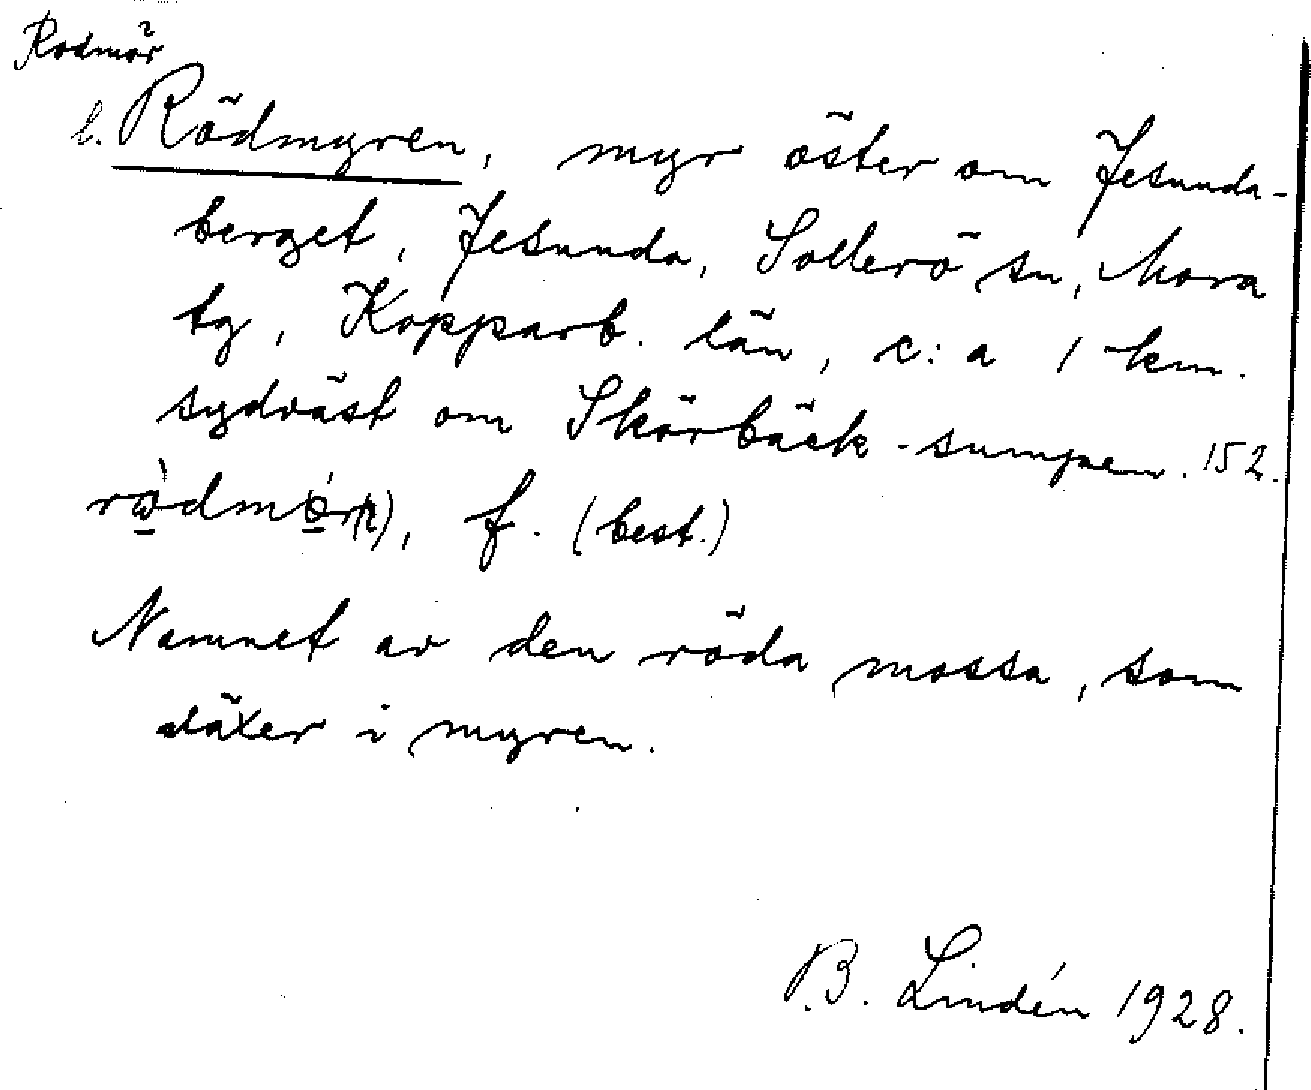 Rodmör
l. Rödmyren, myr öster om Jesunda-
berget, Jesunda, Sollerö sn, Mora
tg, Kopparb. län, c:a 1 km.
sydväst om Skörbäck-sumpen. 152.
f. (best.)
Namnet av den röda mossa, som
växer i myren.
B. Lindén 1928.